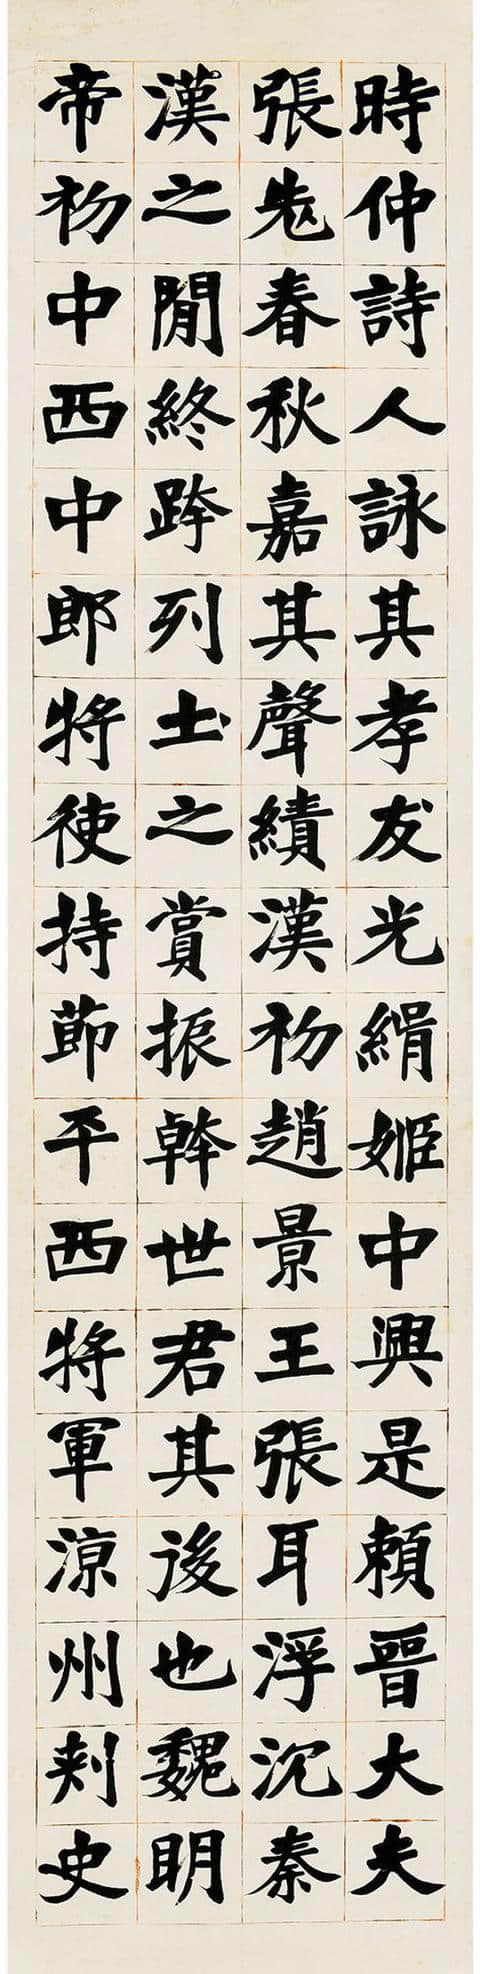 時仲詩人詠其孝友光緝姬中興是賴晉大夫
張老春秋嘉其聲績漢初趙景王張耳浮沉秦
漢之間終跨列土之賞振幹世君其後也魏明
帝初中西中郎將使持節平西將軍涼州刺史